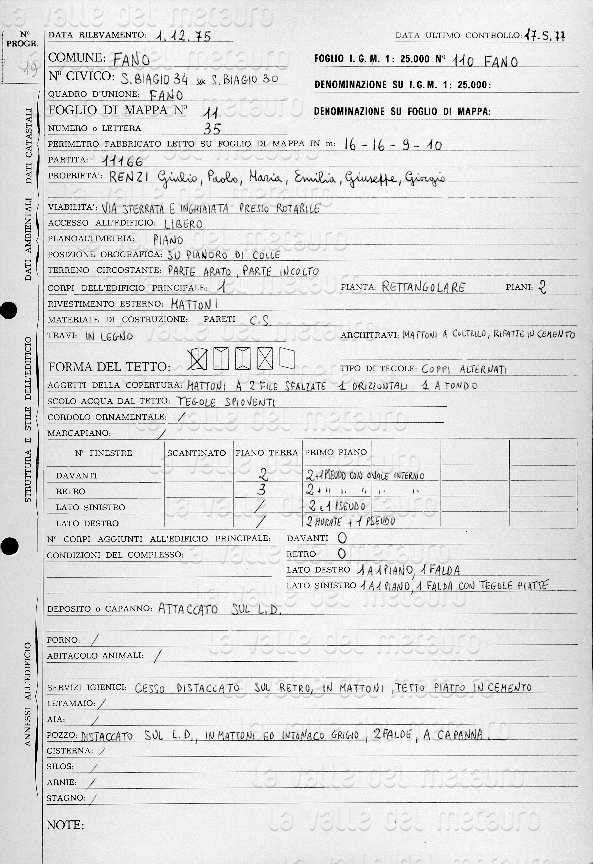 N° PROGR.
19
DATA RILEVAMENTO: 1.12.75 DATA ULTIMO CONTROLLO: 17-5-77
COMUNE: FANO FOGLIO I.G.M. 1: 25.000 N° 110 FANO
N° CIVICO: S. BIAGIO 34 S. BIAGIO 30 DENOMINAZIONE SU I.G.M. 1: 25.000:
QUADRO D'UNIONE: FANO
FOGLIO DI MAPPA N° 11 DENOMINAZIONE SU FOGLIO DI MAPPA:
NUMERO o LETTERA 35
PERIMETRO FABBRICATO LETTO SU FOGLIO DI MAPPA IN m: 16-16-9-10
PARTITA: 11166
PROPRIETA': RENZI Giulio, Paolo, Maria, Emilia, Giuseppe, Giorgio
VIABILITA': VIA STERRATA E INGHIAIATA PRESSO ROTABILE
ACCESSO ALL'EDIFICIO: LIBERO
PLANOALTIMETRIA: PIANO
POSIZIONE OROGRAFICA: SU PIANORO DI COLLE
TERRENO CIRCOSTANTE: PARTE ARATO, PARTE INCOLTO
CORPI DELL'EDIFICIO PRINCIPALE: 1 PIANTA: RETTANGOLARE PIANI: 2
RIVESTIMENTO ESTERNO: MATTONI
MATERIALE DI COSTRUZIONE: PARETI C.S.
TRAVI: IN LEGNO ARCHITRAVI: MATTONI A COLTELLO, RIFATTE IN CEMENTO
FORMA DEL TETTO: TIPO DI TEGOLE: COPPI ALTERNATI
AGGETTI DELLA COPERTURA: MATTONI A 2 FILE SFALZATE 1 ORIZZONTALI 1 A TONDO
SCOLO ACQUA DAL TETTO: TEGOLE SPIOVENTI
CORDOLO ORNAMENTALE: /
MARCAPIANO: /
N° FINESTRE SCANTINATO PIANO TERRA PRIMO PIANO
DAVANTI 2 2+1 PSEUDO CON OVALE INTERNO
RETRO 3 2+ " " " "
LATO SINISTRO / 2 e 1 PSEUDO
LATO DESTRO / 2 MURATE + 1 PSEUDO
N° CORPI AGGIUNTI ALL'EDIFICIO PRINCIPALE: DAVANTI 0
CONDIZIONI DEL COMPLESSO: RETRO 0
LATO DESTRO 1 A 1 PIANO, 1 FALDA
LATO SINISTRO 1 A 1 PIANO, 1 FALDA CON TEGOLE PIATTE
DEPOSITO o CAPANNO: ATTACCATO SUL L.D.
FORNO: /
ABITACOLO ANIMALI: /
SERVIZI IGIENICI: CESSO DISTACCATO SUL RETRO, IN MATTONI, TETTO PIATTO IN CEMENTO
LETAMAIO: /
AIA: /
POZZO: DISTACCATO SUL L.D., IN MATTONI ED INTONACO GRIGIO, 2 FALDE, A CAPANNA.
CISTERNA: /
SILOS: /
ARNIE: /
STAGNO: /
NOTE:
DATI CATASTALI
DATI AMBIENTALI
STRUTTURA E STILE DELL'EDIFICIO
ANNESSI ALL'EDIFICIO
la valle del metauro